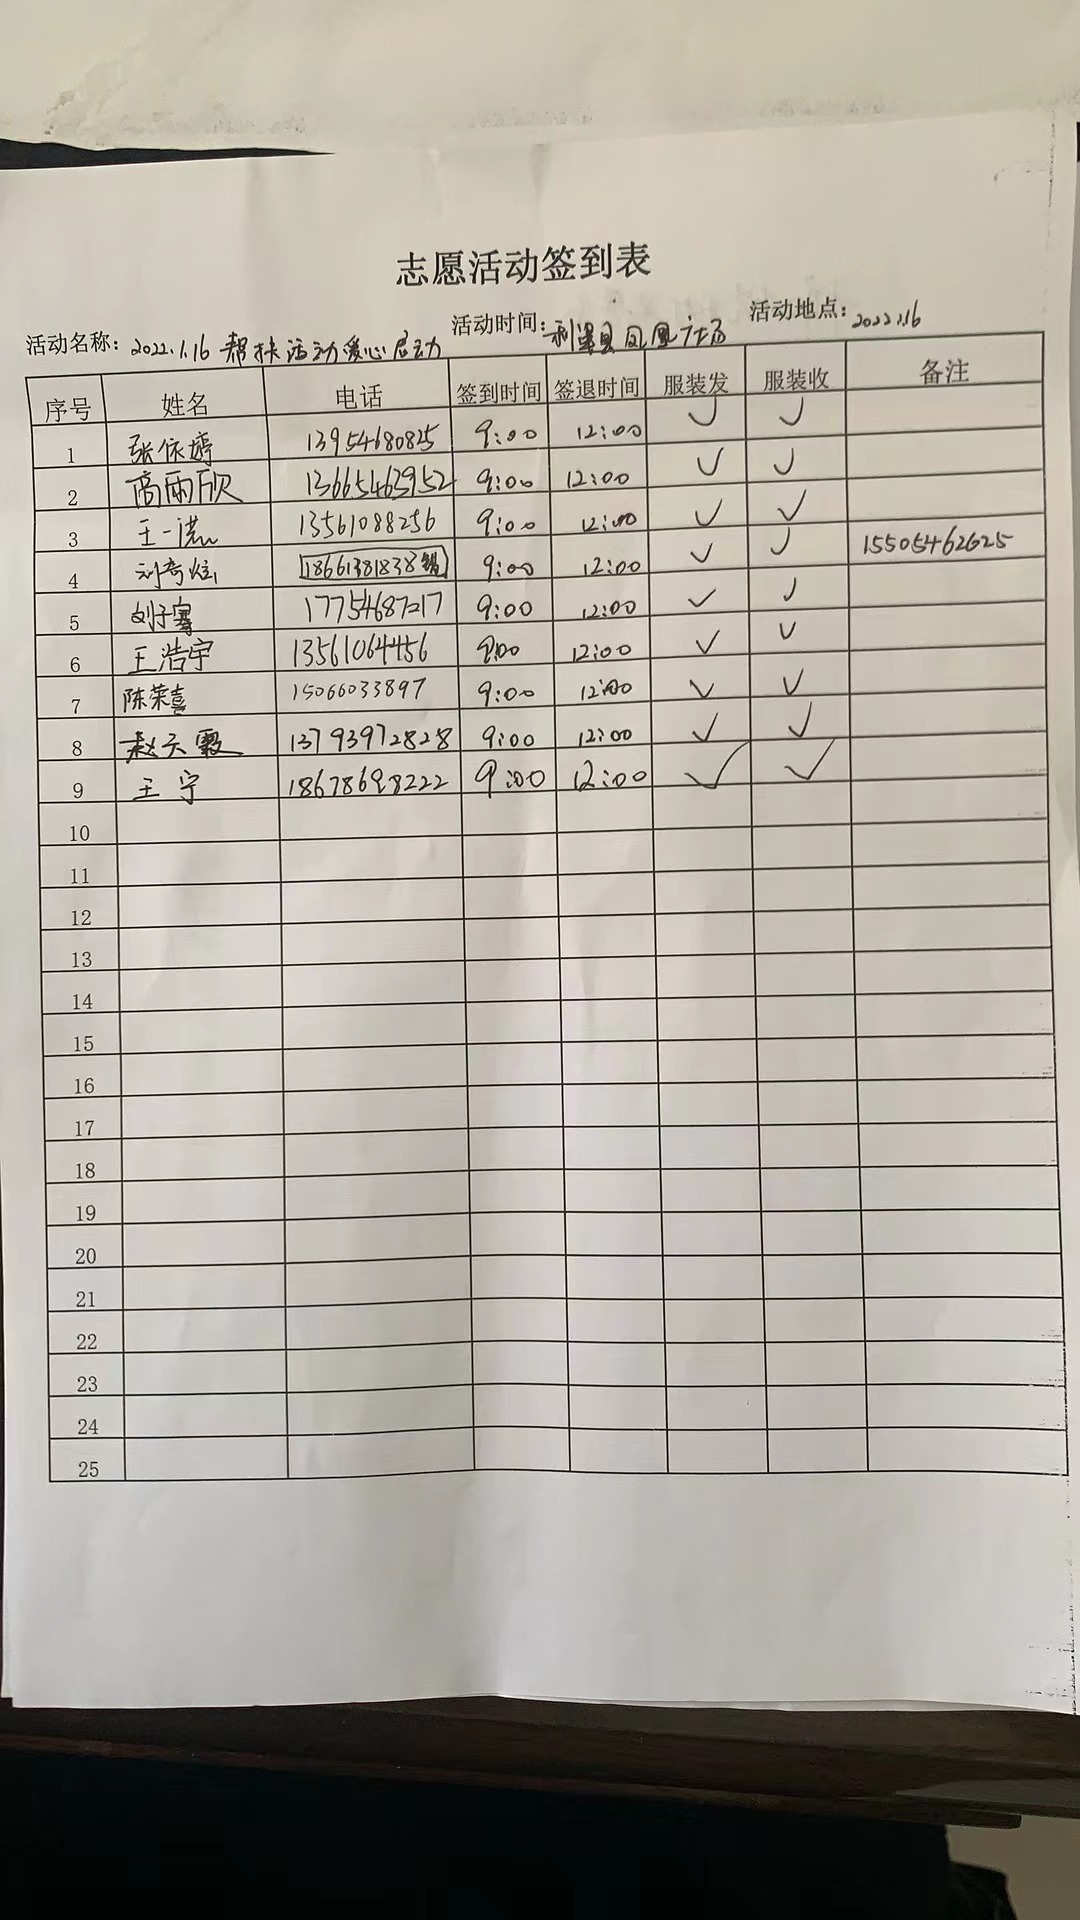 志愿活动签到表
活动名称：2022.1.16 帮扶活动爱心启动 活动时间：利津县凤凰广场 活动地点：2022.1.16
序号 姓名 电话 签到时间 签退时间 服装发 服装收 备注
1 张依婷 13954680825 9:00 12:00 ✓ ✓
2 商雨欣 13665463952 9:00 12:00 ✓ ✓
3 王一诺 13561088256 9:00 12:00 ✓ ✓
4 刘奇炫 18661381838 9:00 12:00 ✓ ✓ 15505462625
5 刘子骞 17754687217 9:00 12:00 ✓ ✓
6 王浩宇 13561064456 9:00 12:00 ✓ ✓
7 陈荣喜 15066033897 9:00 12:00 ✓ ✓
8 赵天霞 13793972828 9:00 12:00 ✓ ✓
9 王宁 18678698222 9:00 12:00 ✓ ✓
10
11
12
13
14
15
16
17
18
19
20
21
22
23
24
25